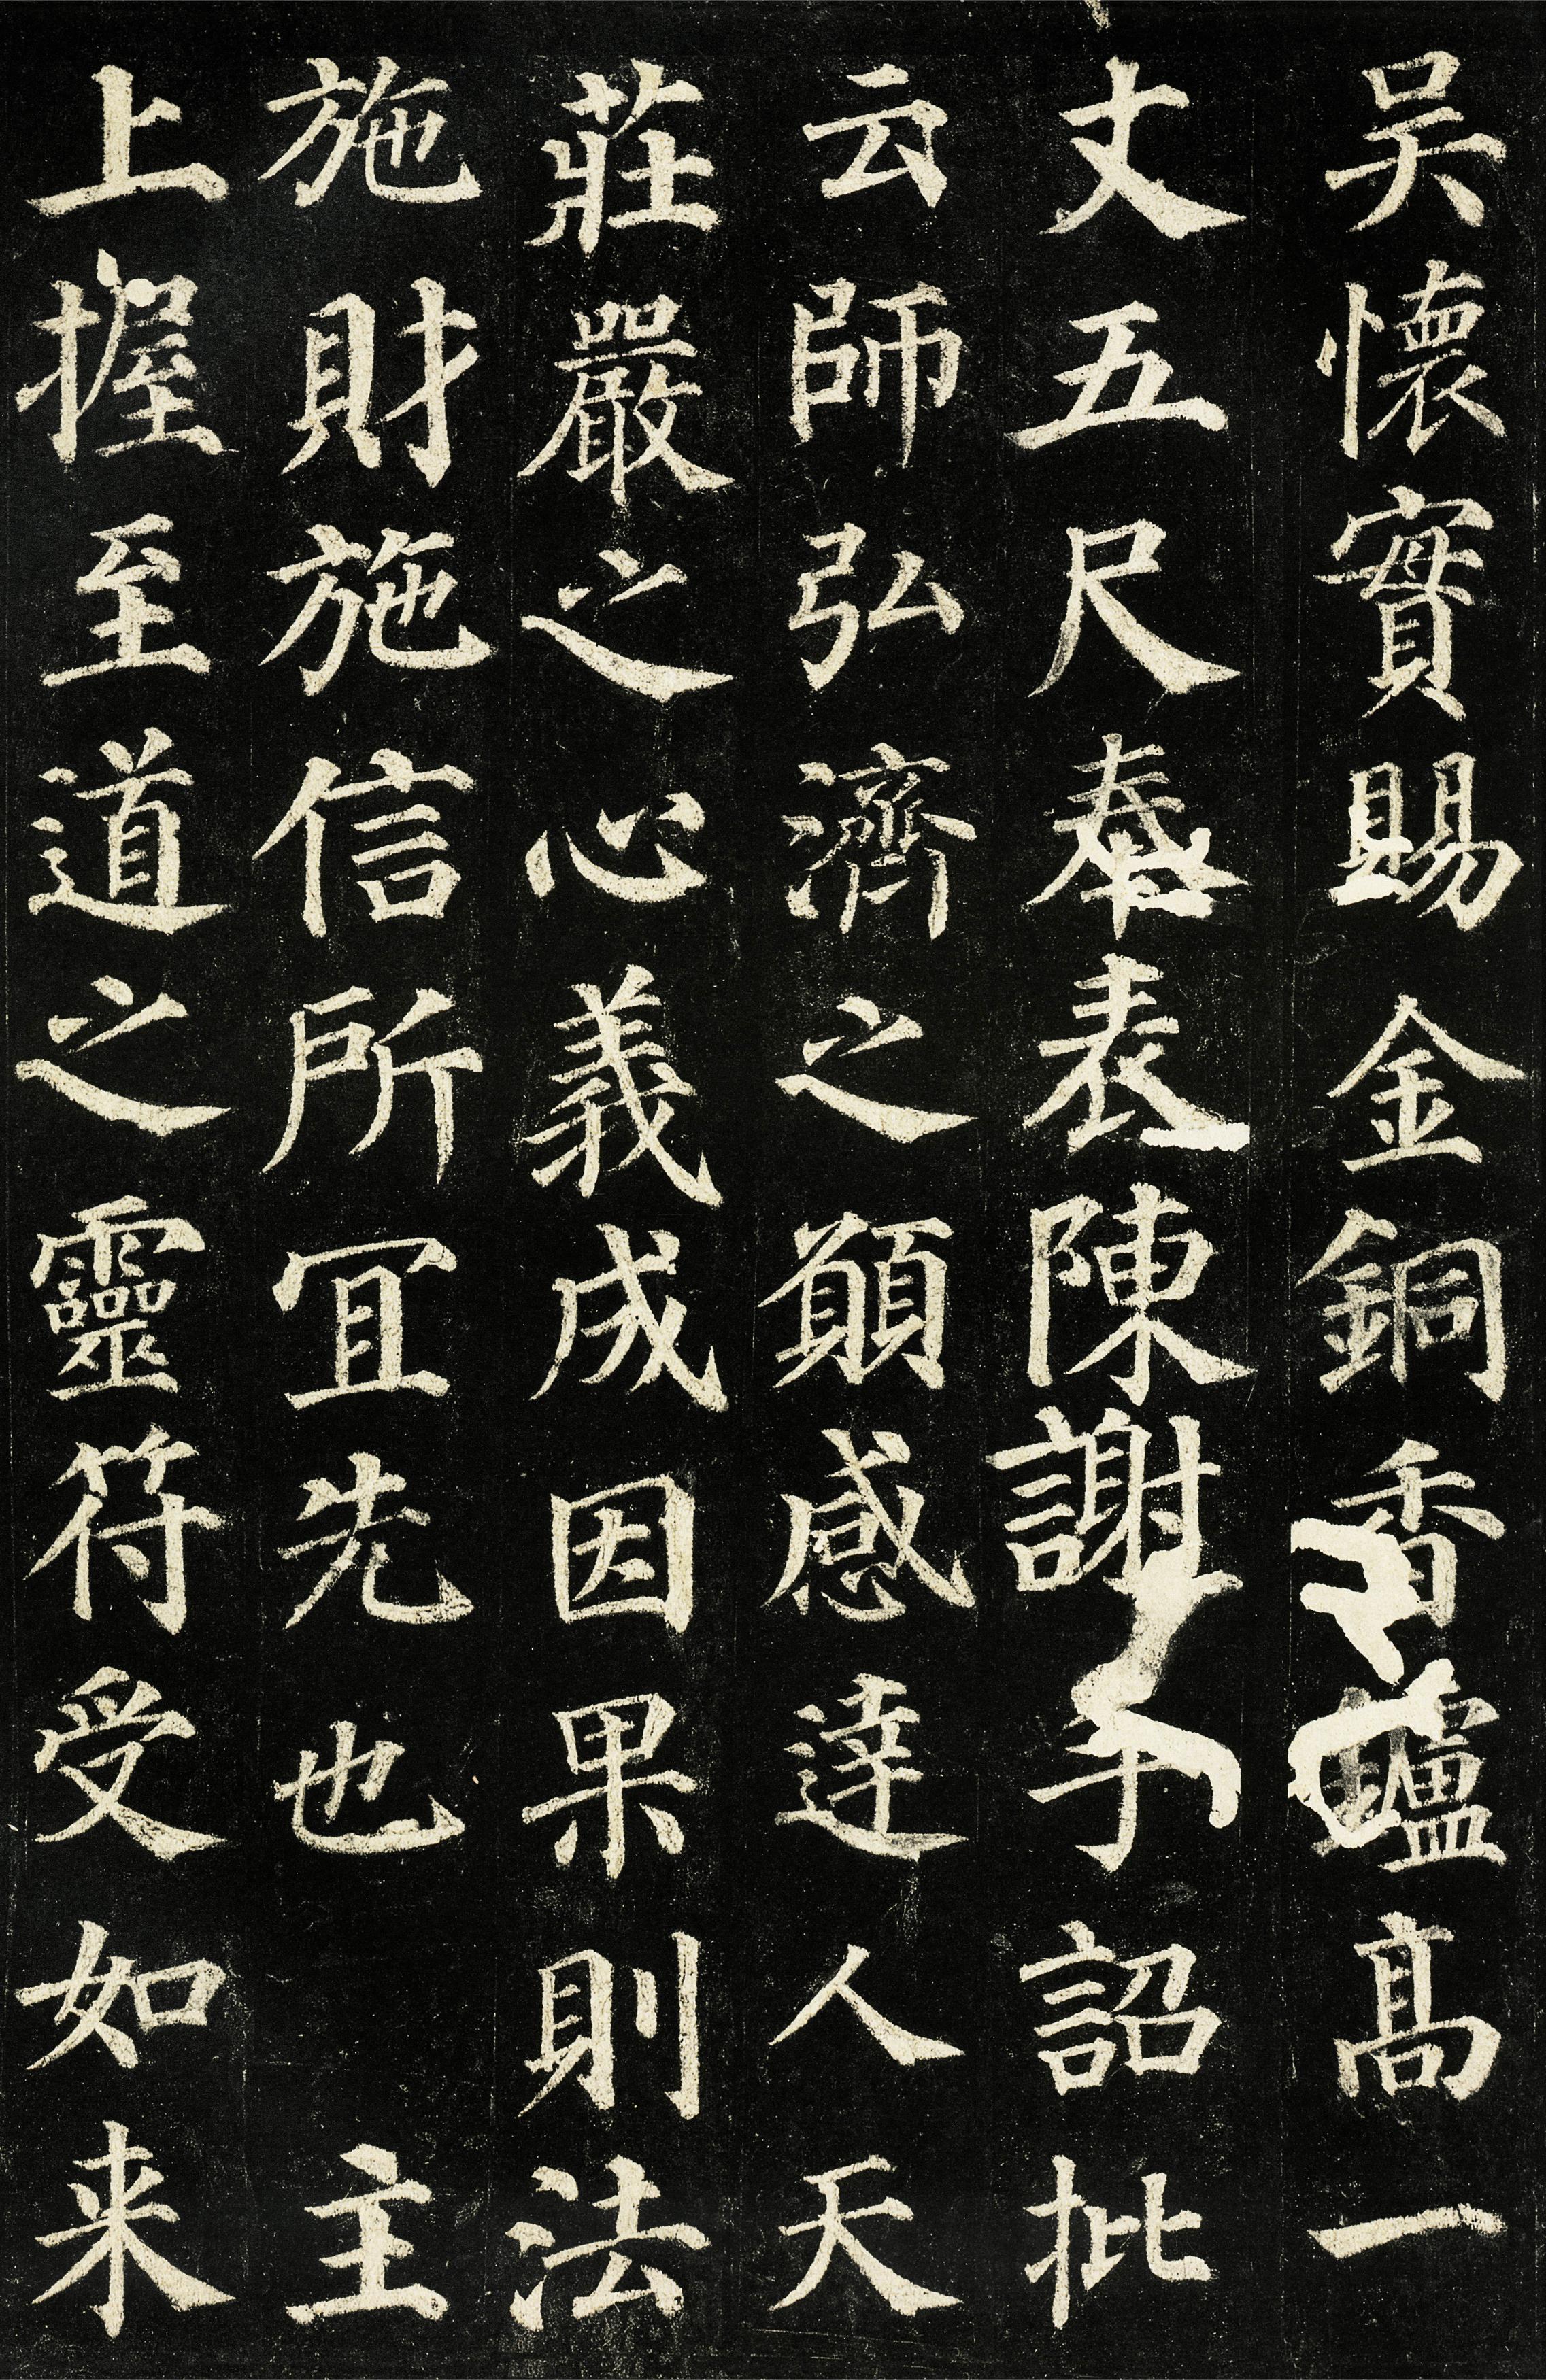 吴懷實賜金銅香鑪高一
丈五尺奉表陳謝手詔批
云師弘濟之願感達人天
莊嚴之心義成因果則法
施財施信所宜先也 主
上握至道之靈符受如来